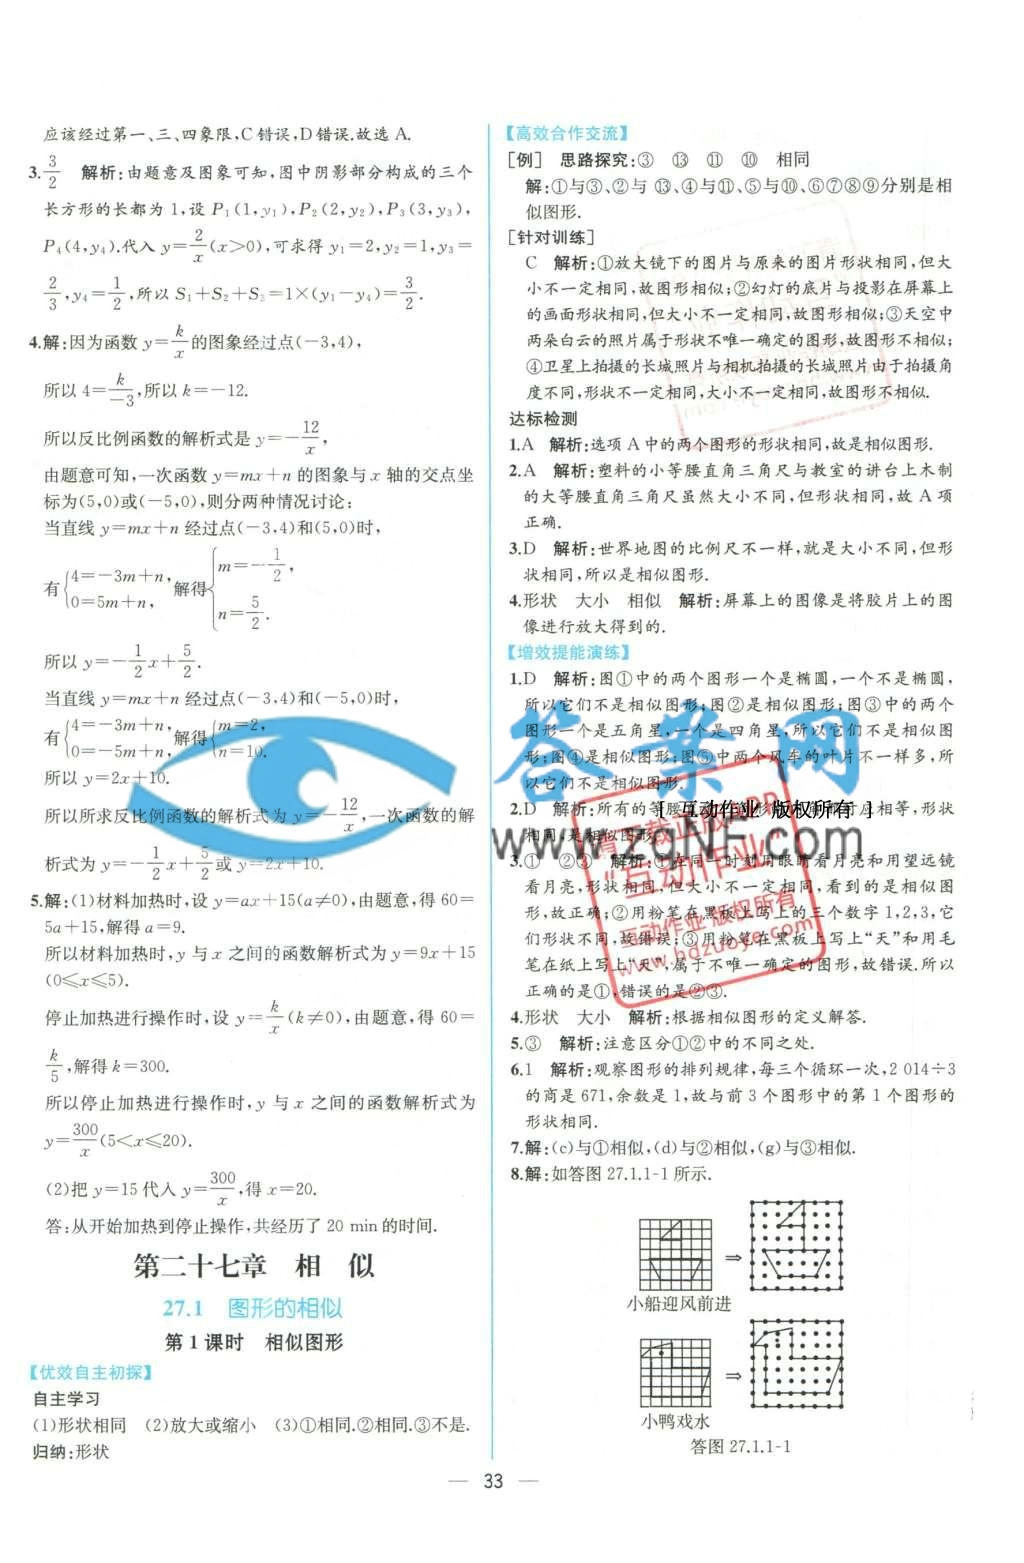 应该经过第一、三、四象限,C错误,D错误.故选A.
3. 3/2 解析:由题意及图象可知,图中阴影部分构成的三个
长方形的长都为1,设P₁(1,y₁),P₂(2,y₂),P₃(3,y₃),
P₄(4,y₄).代入y=2/x(x>0),可求得y₁=2,y₂=1,y₃=
2/3,y₄=1/2,所以S₁+S₂+S₃=1×(y₁-y₄)=3/2.
4.解:因为函数y=k/x的图象经过点(-3,4),
所以4=k/-3,所以k=-12.
所以反比例函数的解析式是y=-12/x.
由题意可知,一次函数y=mx+n的图象与x轴的交点坐
标为(5,0)或(-5,0),则分两种情况讨论:
当直线y=mx+n经过点(-3,4)和(5,0)时,
有{4=-3m+n, 0=5m+n, 解得{m=-1/2, n=5/2.
所以y=-1/2x+5/2.
当直线y=mx+n经过点(-3,4)和(-5,0)时,
有{4=-3m+n, 0=-5m+n, 解得{m=2, n=10.
所以y=2x+10.
所以所求反比例函数的解析式为y=-12/x,一次函数的解
析式为y=-1/2x+5/2或y=2x+10.
5.解:(1)材料加热时,设y=ax+15(a≠0),由题意,得60=
5a+15,解得a=9.
所以材料加热时,y与x之间的函数解析式为y=9x+15
(0≤x≤5).
停止加热进行操作时,设y=k/x(k≠0),由题意,得60=
k/5,解得k=300.
所以停止加热进行操作时,y与x之间的函数解析式为
y=300/x(5<x≤20).
(2)把y=15代入y=300/x,得x=20.
答:从开始加热到停止操作,共经历了20 min的时间.
第二十七章 相 似
27.1 图形的相似
第1课时 相似图形
【优效自主初探】
自主学习
(1)形状相同 (2)放大或缩小 (3)①相同.②相同.③不是.
归纳:形状
【高效合作交流】
[例] 思路探究:③ ⑬ ⑪ ⑩ 相同
解:①与③、②与⑬、④与⑪、⑤与⑩、⑥⑦⑧⑨分别是相
似图形.
[针对训练]
C 解析:①放大镜下的图片与原来的图片形状相同,但大
小不一定相同,故图形相似;②幻灯的底片与投影在屏幕上
的画面形状相同,但大小不一定相同,故图形相似;③天空中
两朵白云的照片属于形状不唯一确定的图形,故图形不相似;
④卫星上拍摄的长城照片与相机拍摄的长城照片由于拍摄角
度不同,形状不一定相同,大小不一定相同,故图形不相似.
达标检测
1.A 解析:选项A中的两个图形的形状相同,故是相似图形.
2.A 解析:塑料的小等腰直角三角尺与教室的讲台上木制
的大等腰直角三角尺虽然大小不同,但形状相同,故A项
正确.
3.D 解析:世界地图的比例尺不一样,就是大小不同,但形
状相同,所以是相似图形.
4.形状 大小 相似 解析:屏幕上的图像是将胶片上的图
像进行放大得到的.
【增效提能演练】
1.D 解析:图①中的两个图形一个是椭圆,一个不是椭圆,
所以它们不是相似图形;图②是相似图形;图③中的两个
图形一个是五角星,一个是四角星,所以它们不是相似图
形;图④是相似图形;图⑤中两个风车的叶片不一样多,所
以它们不是相似图形.
2.D 解析:所有的等腰 相等,形状
相同,是相似图形.
3.① ②③ 解析:①在同一时刻用眼睛看月亮和用望远镜
看月亮,形状相同,但大小不一定相同,看到的是相似图
形,故正确;②用粉笔在黑板上写上的三个数字1,2,3,它
们形状不同,故错误;③用粉笔在黑板上写上“天”和用毛
笔在纸上写上“天”,属于不唯一确定的图形,故错误.所以
正确的是①,错误的是②③.
4.形状 大小 解析:根据相似图形的定义解答.
5.③ 解析:注意区分①②中的不同之处.
6.1 解析:观察图形的排列规律,每三个循环一次,2 014÷3
的商是671,余数是1,故与前3个图形中的第1个图形的
形状相同.
7.解:(c)与①相似,(d)与②相似,(g)与③相似.
8.解:如答图27.1.1-1所示.
⇒
小船迎风前进
⇒
小鸭戏水
答图27.1.1-1
33
答案网
www.zqnf.com
[ 互动作业 版权所有 ]
请下载正版APP
“互动作业”
互动作业 版权所有
www.hdzuoye.com